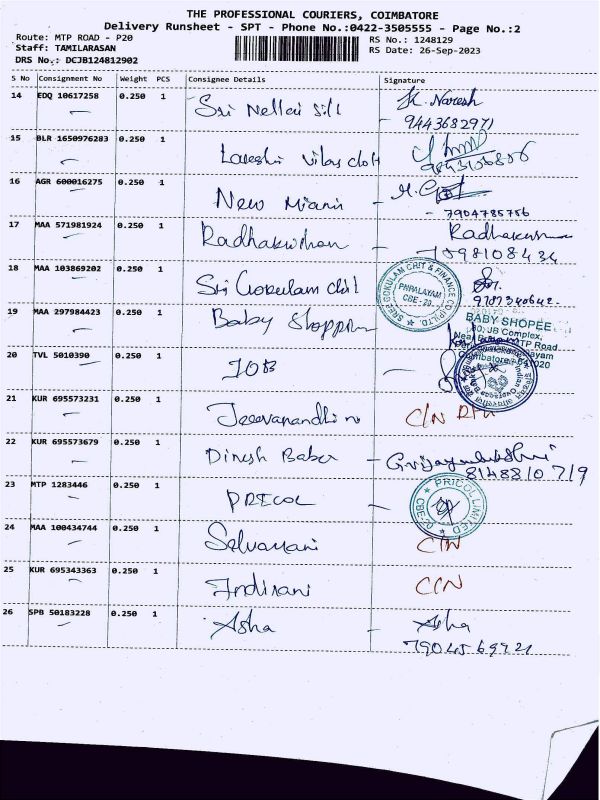 THE PROFESSIONAL COURIERS, COIMBATORE
Delivery Runsheet - SPT - Phone No.:0422-3505555 - Page No.:2
Route: MTP ROAD - P20
RS No.: 1248129
Staff: TAMILARASAN
RS Date: 26-Sep-2023
DRS No.: DCJB124812902
S No Consignment No Weight PCS Consignee Details Signature
14 EDQ 10617258 0.250 1 Sri Nellai Sill K. Naresh
9443682971
15 BLR 1650976283 0.250 1 Vilas
16 AGR 600016275 0.250 1 New Miami
7904785756
17 MAA 571981924 0.250 1 Radhakrishnan
18 MAA 103869202 0.250 1 Sri Gokulam Chit
SREE GOKULAM CHIT & FINANCE CO (P) LTD.
PNPALAYAM
CBE-20
19 MAA 297984423 0.250 1 Baby
BABY SHOPEE
JB Complex,
MTP Road
20 TVL 5010390 0.250 1 IOB
21 KUR 695573231 0.250 1 C/N
22 KUR 695573679 0.250 1 Dinesh Baber
8148810719
23 MTP 1283446 0.250 1 PRICOL
PRICOL LIMITED
CBE-20
24 MAA 100434744 0.250 1 Selvamani C/N
25 KUR 695343363 0.250 1 Indirani C/N
26 SPB 50183228 0.250 1 Asha - Asha